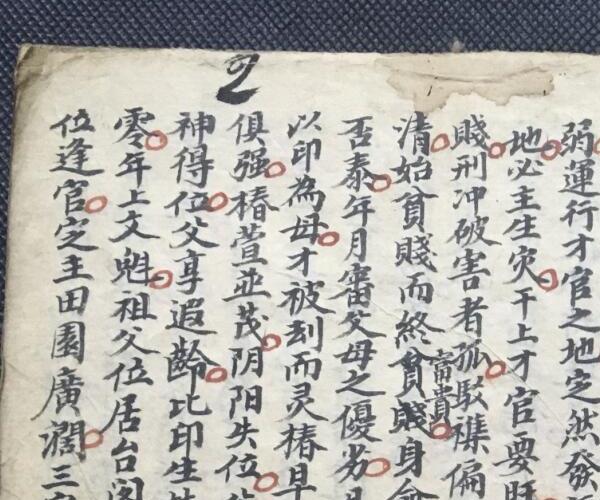 弱運行才官之地定然發
地必主生灾干上才官要旺
賤刑冲破害者孤駁雜偏
清始貧賤而終貧賤富貴身
否泰年月審父母之優劣
以印為母才被刦而灵椿早
俱强椿萱並茂阴阳失位
神得位父享遐齡比印生
零年上文魁祖父位居台閣
位逢官定主田園廣濶三
2